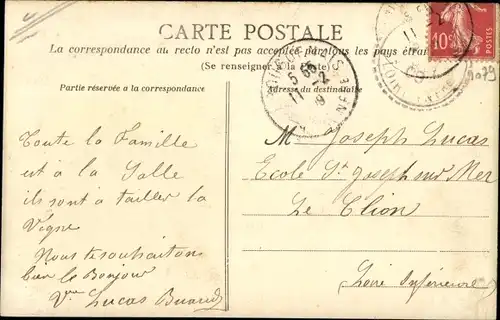 CARTE POSTALE
La correspondance au recto n'est pas acceptée par tous les pays étran
(Se renseigner à la Poste)
Partie réservée a la correspondance
Adresse du destinataire
Toute la Famille
est à la Salle
ils sont à tailler la
Vigne
Nous te souhaitons
bien le Bonjour
Vve Lucas
M Joseph Lucas
Ecole St Joseph sur Mer
Le Clion
Loire Inférieure
10c
POSTES